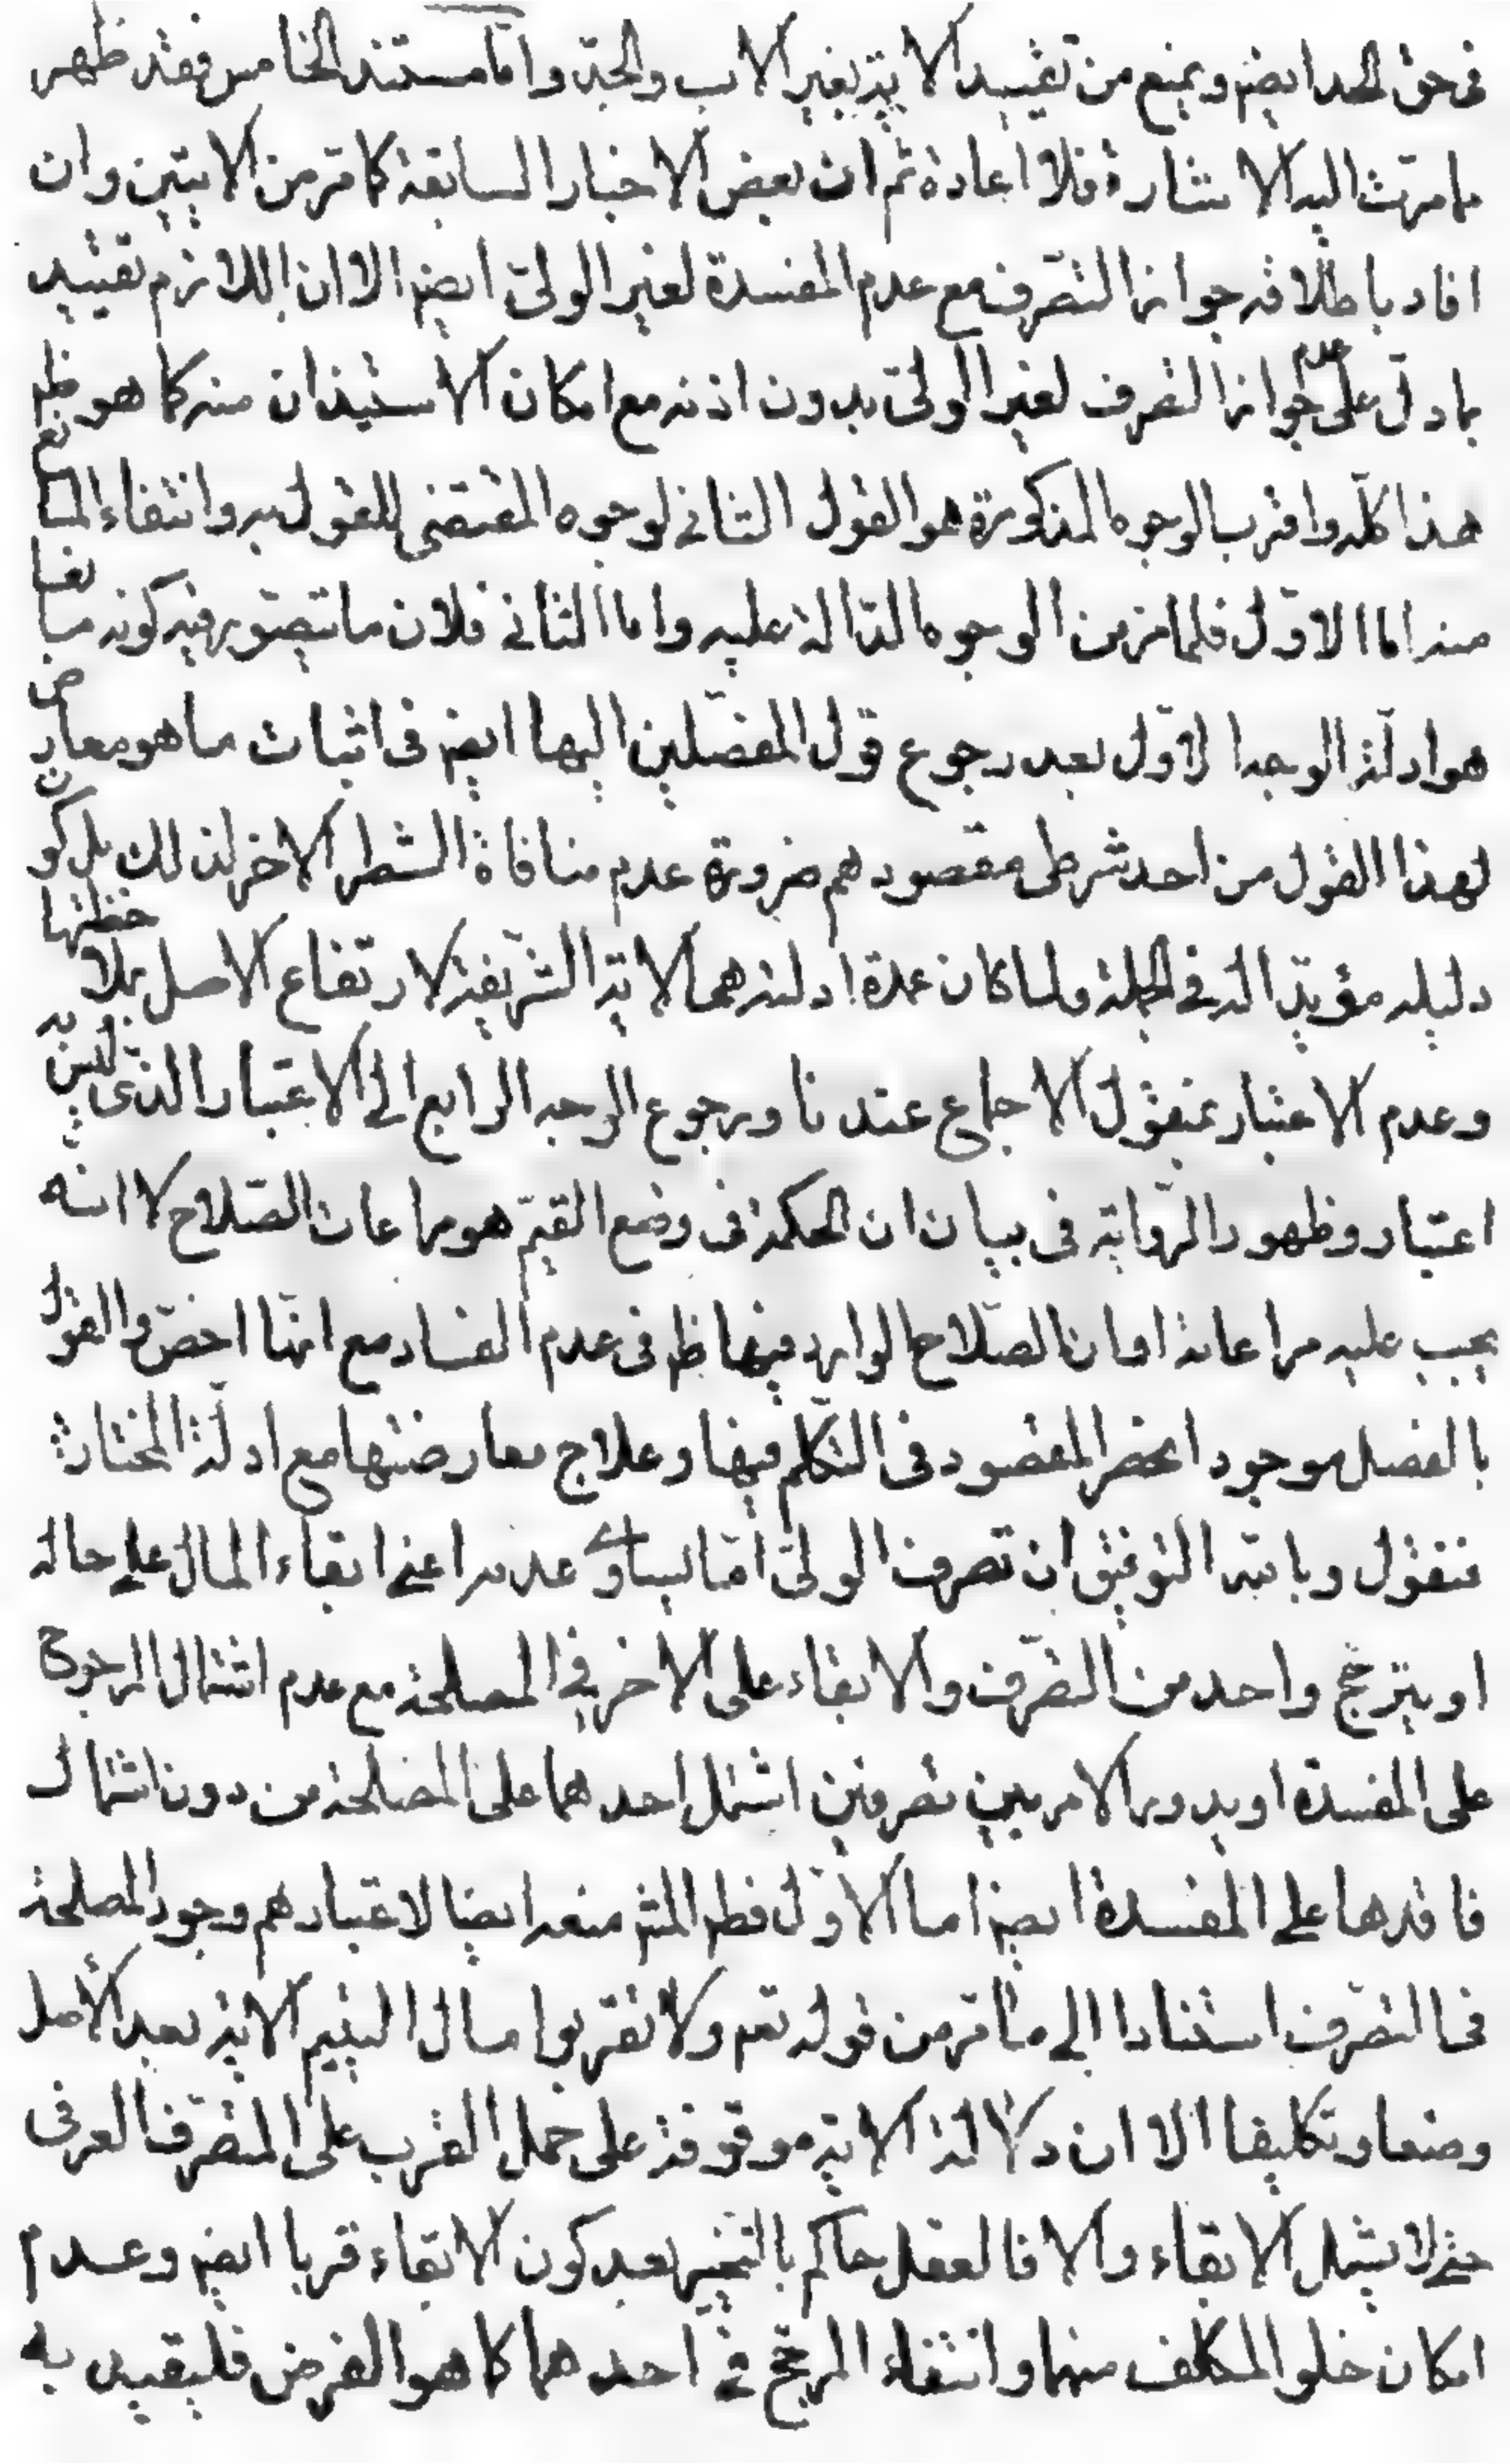 فى حق الجد ايضم ويمنع من تقييد الاية بغير الاب والجد واما مستند الخامس فقد ظهر
مامرت اليه الاشارة فلا اعادة ثم ان بعض الاخبار السابقة كما مر من الايتين وان
افاد باطلاقه جواز التصرف مع عدم المفسدة لغير الولى ايضم الا ان اللازم تقييد
بما دل على عدم جواز التصرف لغير الولى بدون اذنه مع امكان الاستيذان منه كما هو ظم
هذا كله واقرب الوجوه المذكورة هو القول الثانى لوجوه المقتضى للقول به وانتفاء المانع
منه اما الاول فلما مر من الوجوه الدالة عليه واما الثانى فلان ما يتصور فيه كونه مانعا
هو ادلة الوجه الاول بعد رجوع قول المفصلين اليها ايضم فى اثبات ما هو معارض
لهذا القول من احد شرطى مقصودهم ضرورة عدم منافاة الشطر الاخر لذلك بل كون
دليله مؤيدا له فى الجملة ولما كان عمدة ادلته هما الاية الشريفة لارتفاع الاصل بملاحظتها
وعدم الاعتبار بمنقول الاجماع عندنا ورجوع الوجه الرابع الى الاعتبار الذى ليس به
اعتبار وظهور الرواية فى بيان ان الحكمة فى وضع القيم هو مراعات الصلاح لا انه
يجب عليه مراعاته او ان الصلاح الوارد فيها ظم فى عدم الفساد مع انها اخص والقول
بالفصل موجود انحصر المقصود فى التكلم فيها وعلاج معارضتها مع ادلة المختار ثم
فنقول وبالله التوفيق ان تصرف الولى اما يساوى عدمه اعنى ابقاء المال على حاله
او يترجح واحد من التصرف والابقاء على الاخر فى المصلحة مع عدم اشتمال المرجوح
على المفسدة او يدور الامر بين تصرفين اشتمل احدهما على المصلحة من دون اشتمال
فاقدها على المفسدة ايضم اما الاول فظم المشهم منعه ايضا لاعتبارهم وجود المصلحة
فى التصرف استنادا الى ما مر من قوله تعم ولا تقربوا مال اليتيم الاية بعد الأصل
وضعا وتكليفا الا ان دلالة الاية موقوفة على حمل القرب على التصرف العرفى
حتى لا يشمل الابقاء والا فالعقل حاكم بالتخيير بعد كون الابقاء قربا ايضم وعدم
امكان خلو المكلف منهما وانتفاء المرجح فى احدهما كما هو الفرض فليقيد به